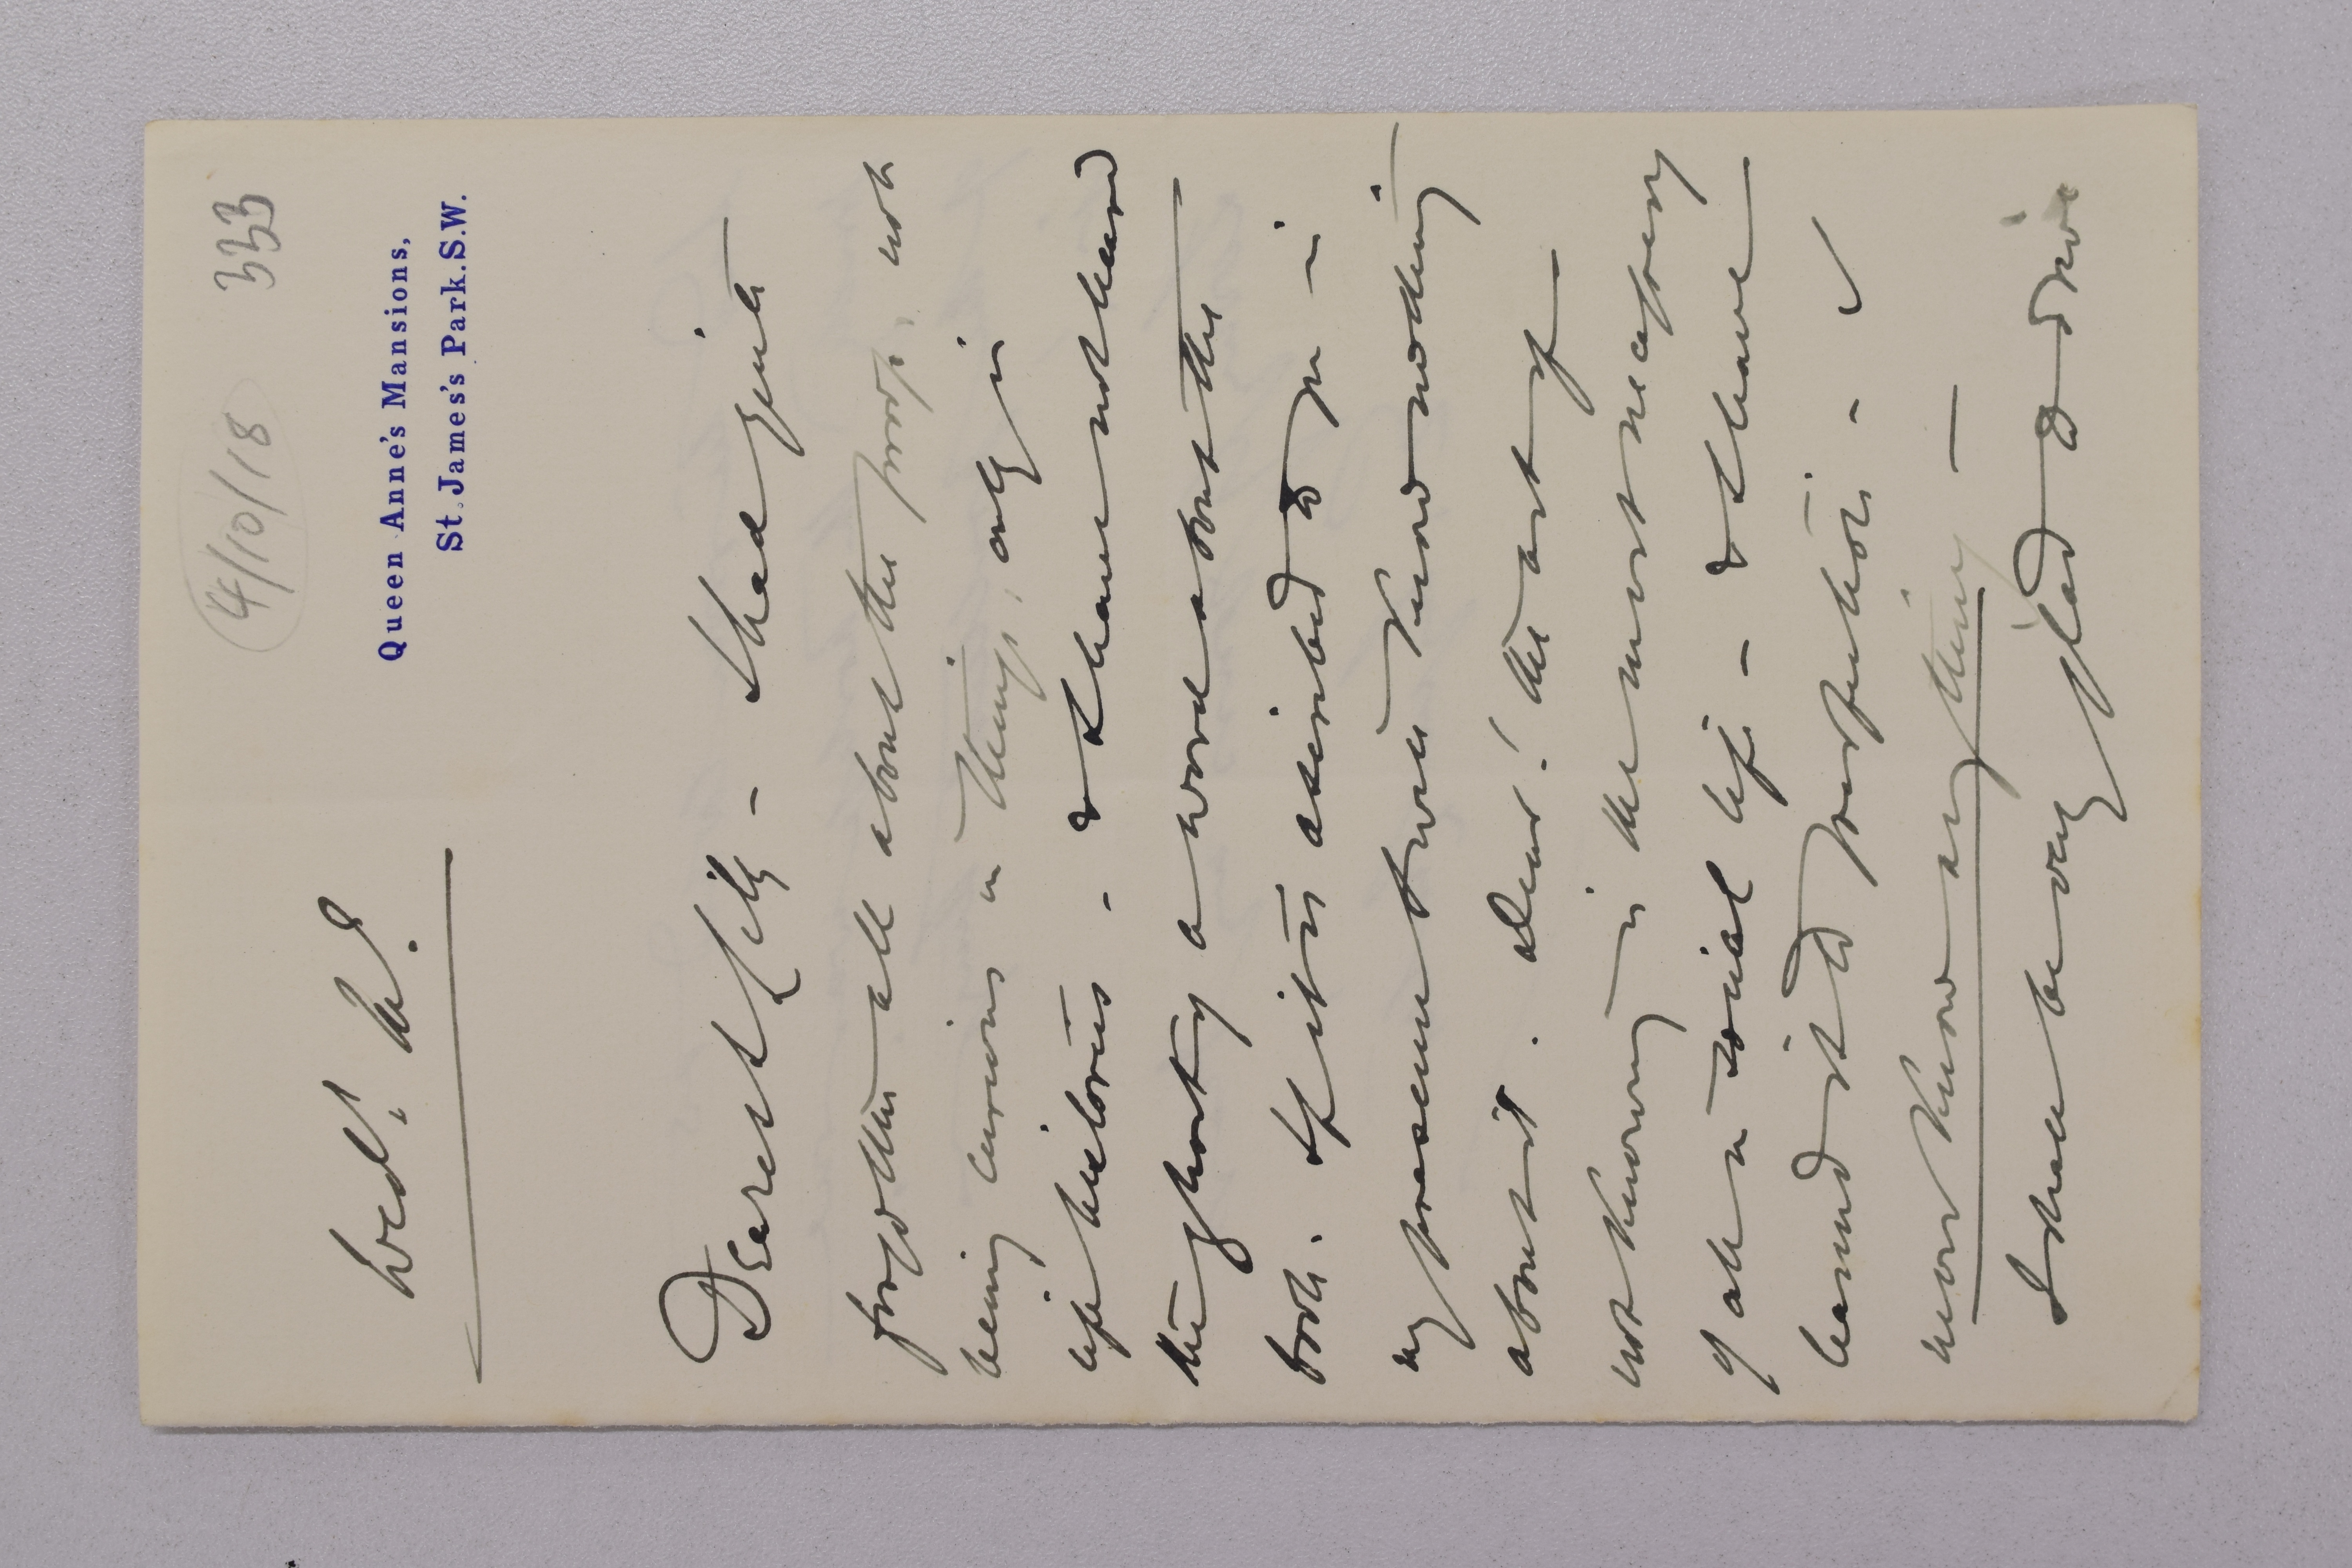 4/10/18 333
Queen Anne's Mansions,
St. James's Park. S.W.
Wed:
Dearest Lily - I had quite
forgotten all about the proofs, not
being curious in things, only in
life histories - & I have not heard
this hasty a word about the
book. If it is ascribed to you -
my presence! twice know nothing
about it. Dear! the art of
not knowing is the most necessary
of all in social life - & I have
learned it to perfection - I
never know anything -
I shall be very glad to dine